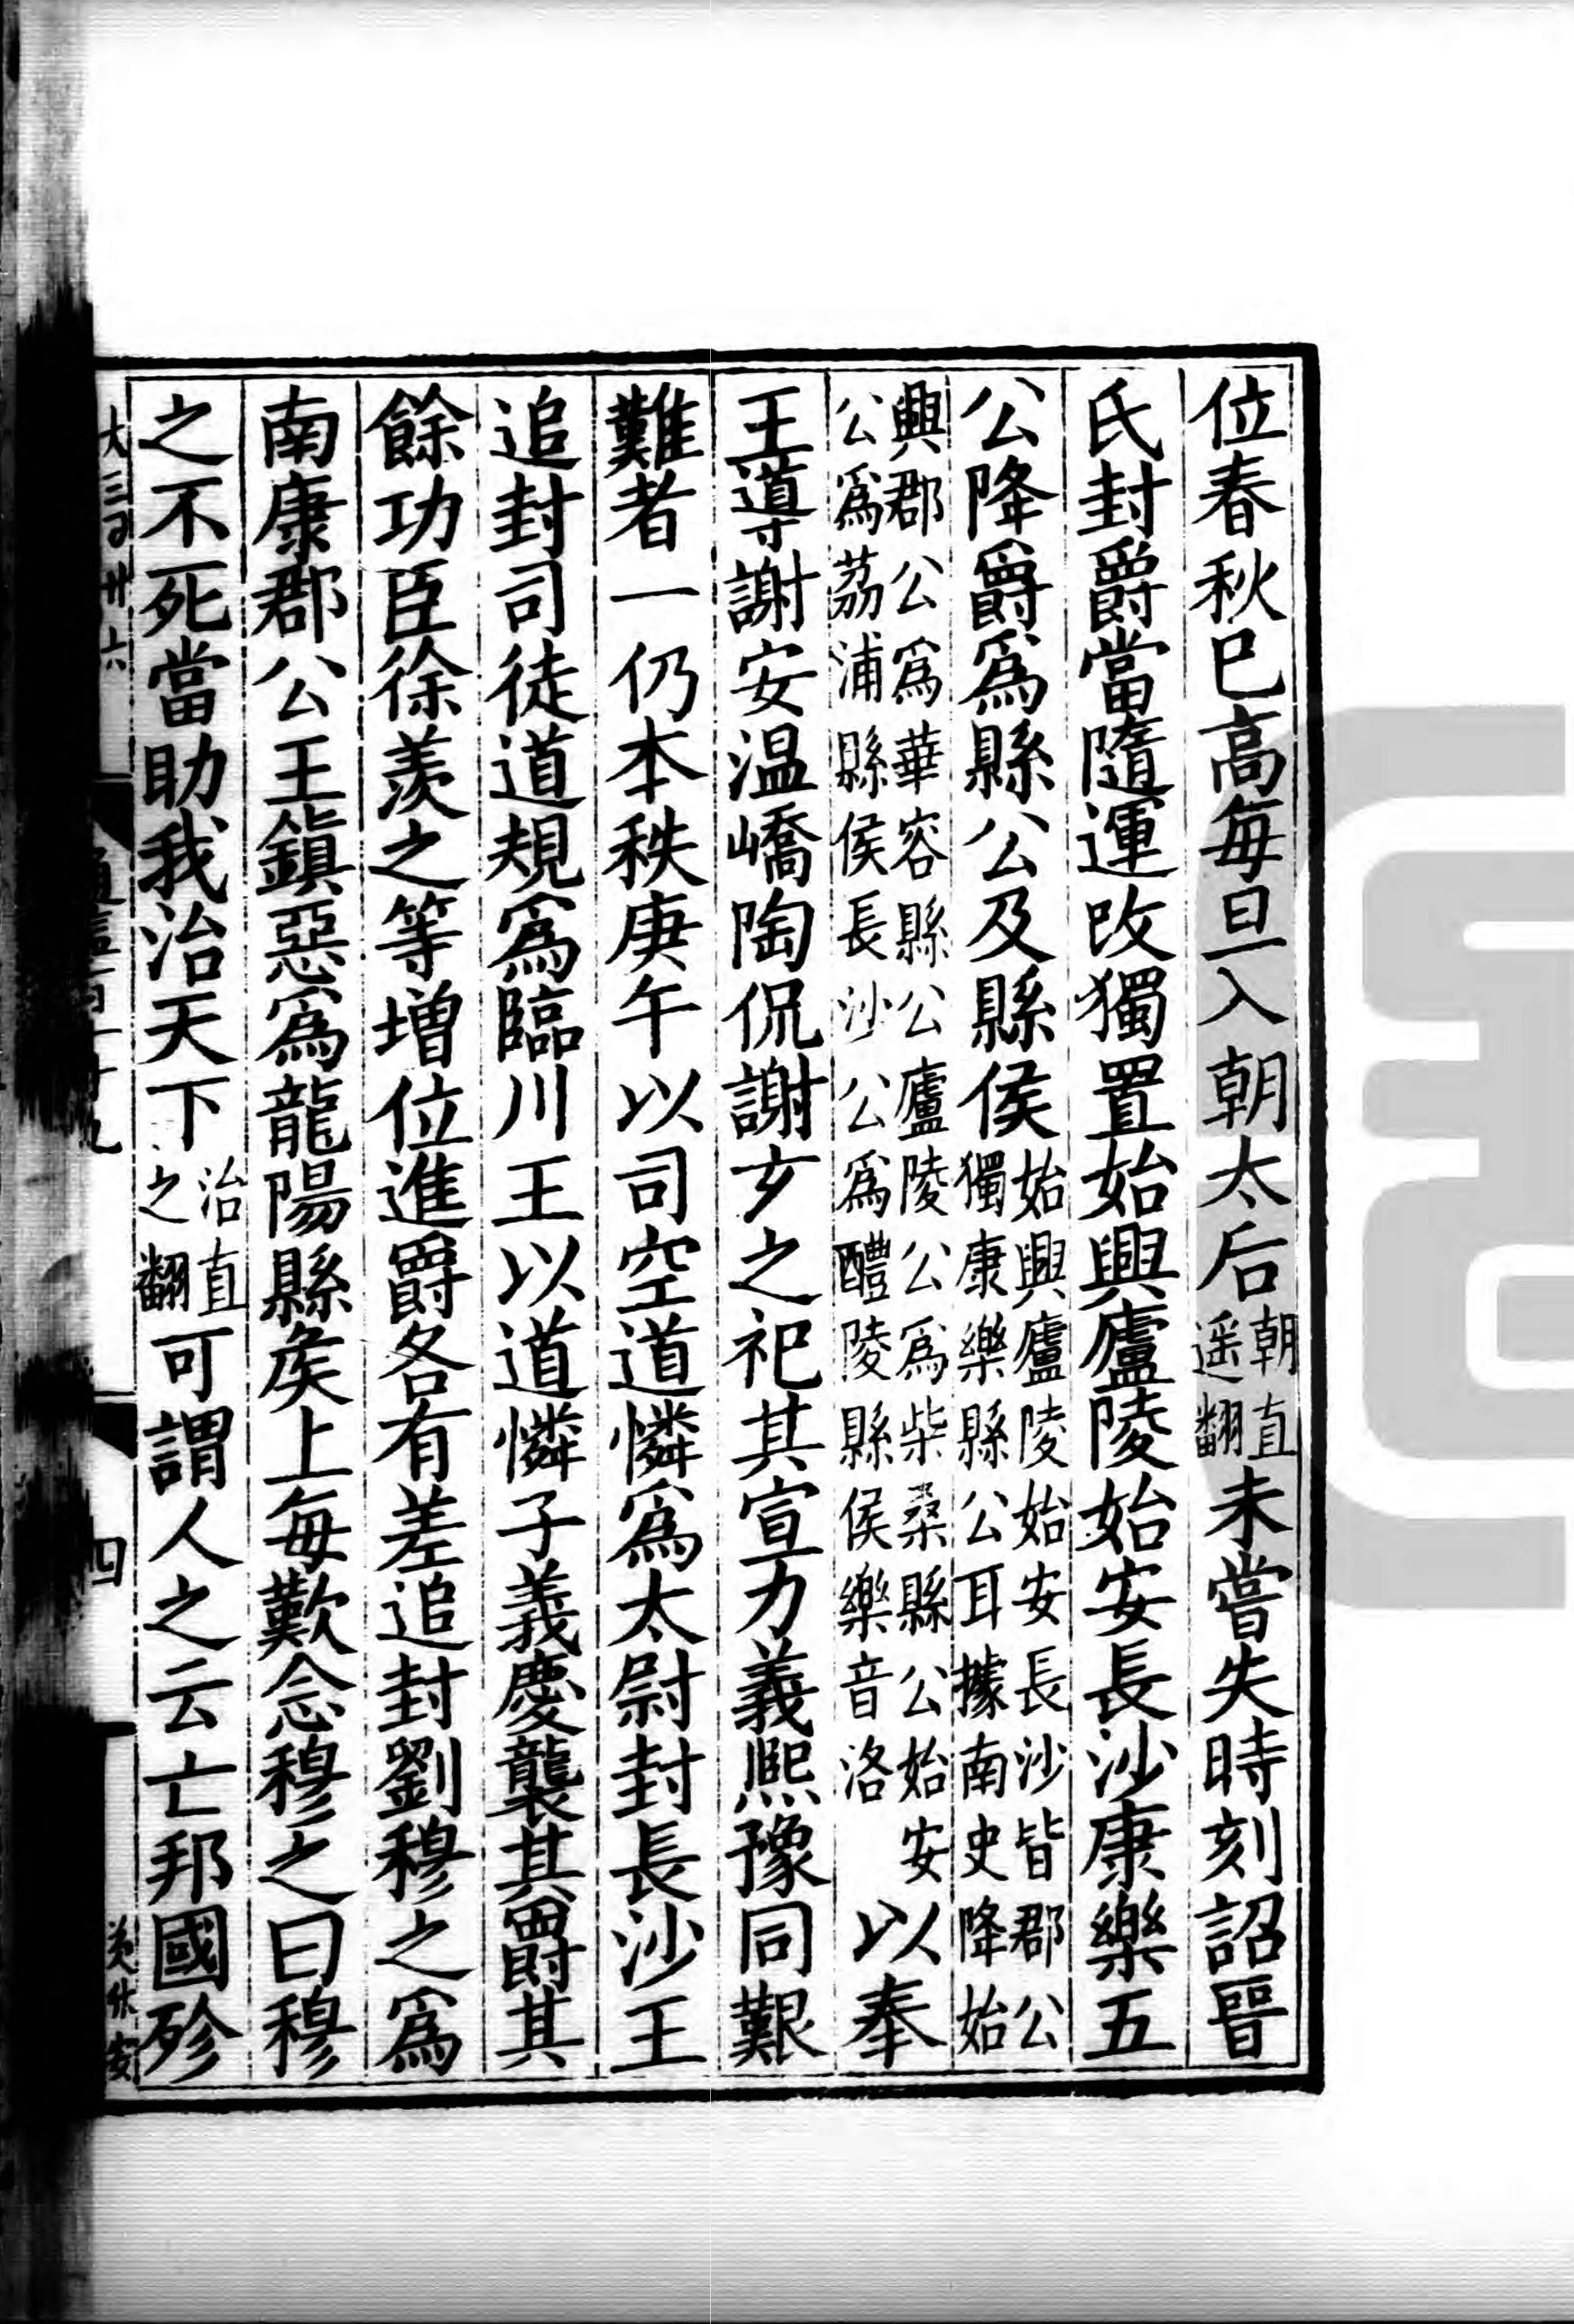 位春秋已高每旦入朝太后朝直遥翻未嘗失時刻詔晉
氏封爵當隨運改獨置始興廬陵始安長沙康樂五
公降爵爲縣公及縣侯始興廬陵始安長沙皆郡公獨康樂縣公耳據南史降始
興郡公爲華容縣公廬陵公爲柴桑縣公始安公爲荔浦縣侯長沙公爲醴陵縣侯樂音洛以奉
王導謝安温嶠陶侃謝玄之祀其宣力義熙豫同艱
難者一仍本秩庚午以司空道憐爲太尉封長沙王
追封司徒道規爲臨川王以道憐子義慶襲其爵其
餘功臣徐羨之等增位進爵各有差追封劉穆之爲
南康郡公王鎮惡爲龍陽縣矦上每歎念穆之曰穆
之不死當助我治天下治直之翻可謂人之云亡邦國殄
大三百卅六
四